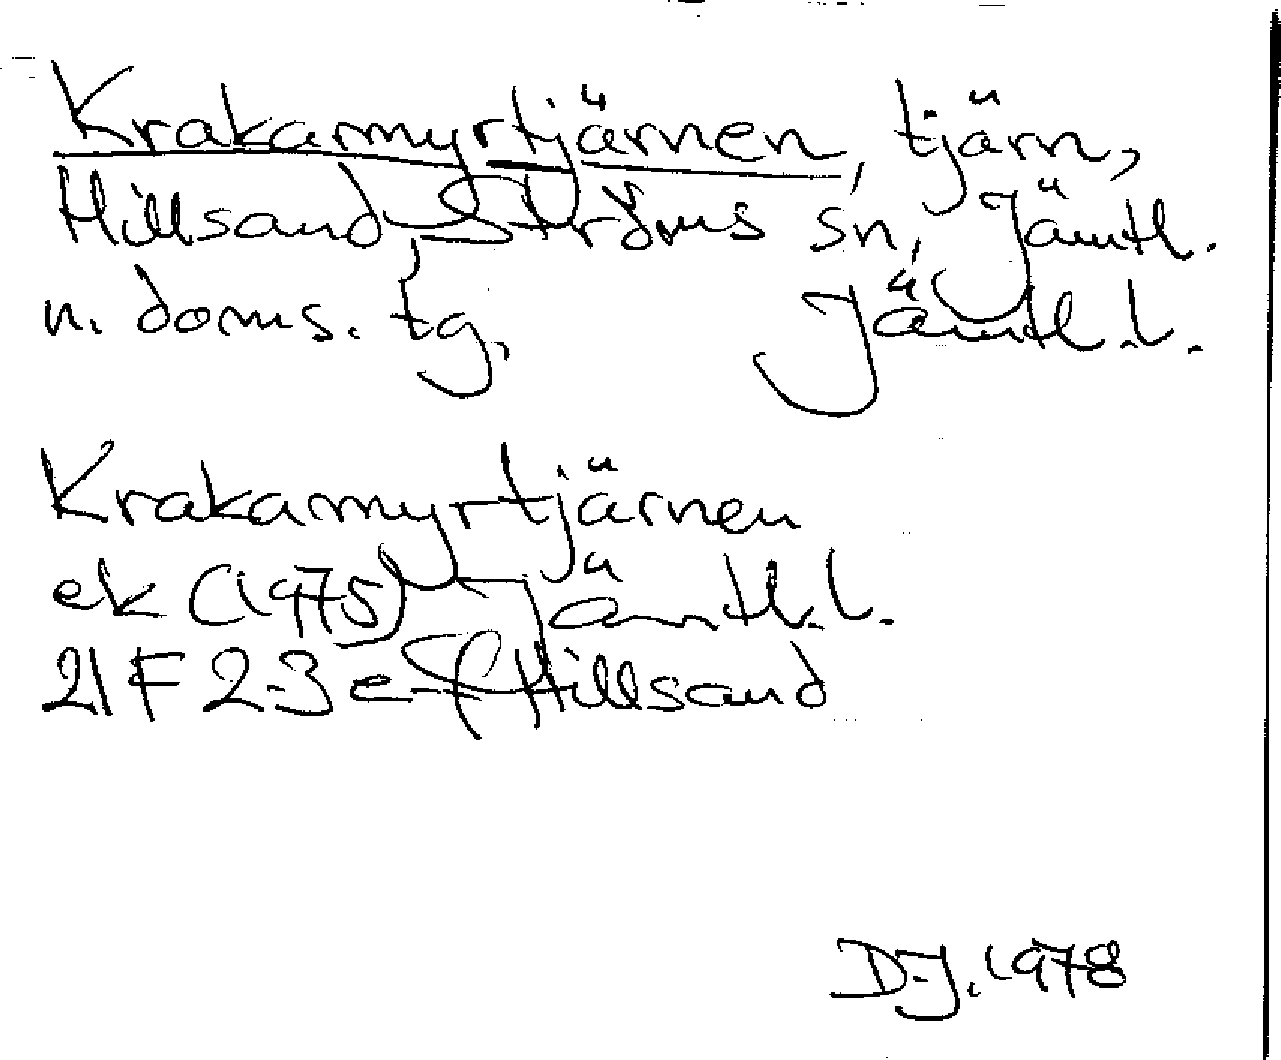 Krakamyrtjärnen, tjärn,
Hillsand, Ströms sn, Jämtl.
n. doms. tg. Jämtl. l.
Krakamyrtjärnen
ek (1975) Jämtl. l.
21 F 2-3 e-f Hillsand
D-J. 1978